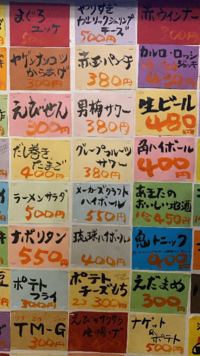 まぐろ
ユッケ
チーズ
500円
赤ウインナー
ヤゲンナンコツ
からあげ
300円
赤玉パンチ
380円
えびせん
300円
男梅サワー
380円
生ビール
480円
だし巻き
たまご
400円
グレープフルーツ
サワー
380円
角ハイボール
400円
ラーメンサラダ
500円
メーカーズクラフト
ハイボール
550円
あきたの
おいしい地酒
450円
ナポリタン
550円
琉球ハイボール
400円
鬼トニック
400円
ポテト
フライ
300円
ポテト
チーズもち
2コ 300円
えだまめ
300円
TM-G
ナゲット
&ポテト
500円